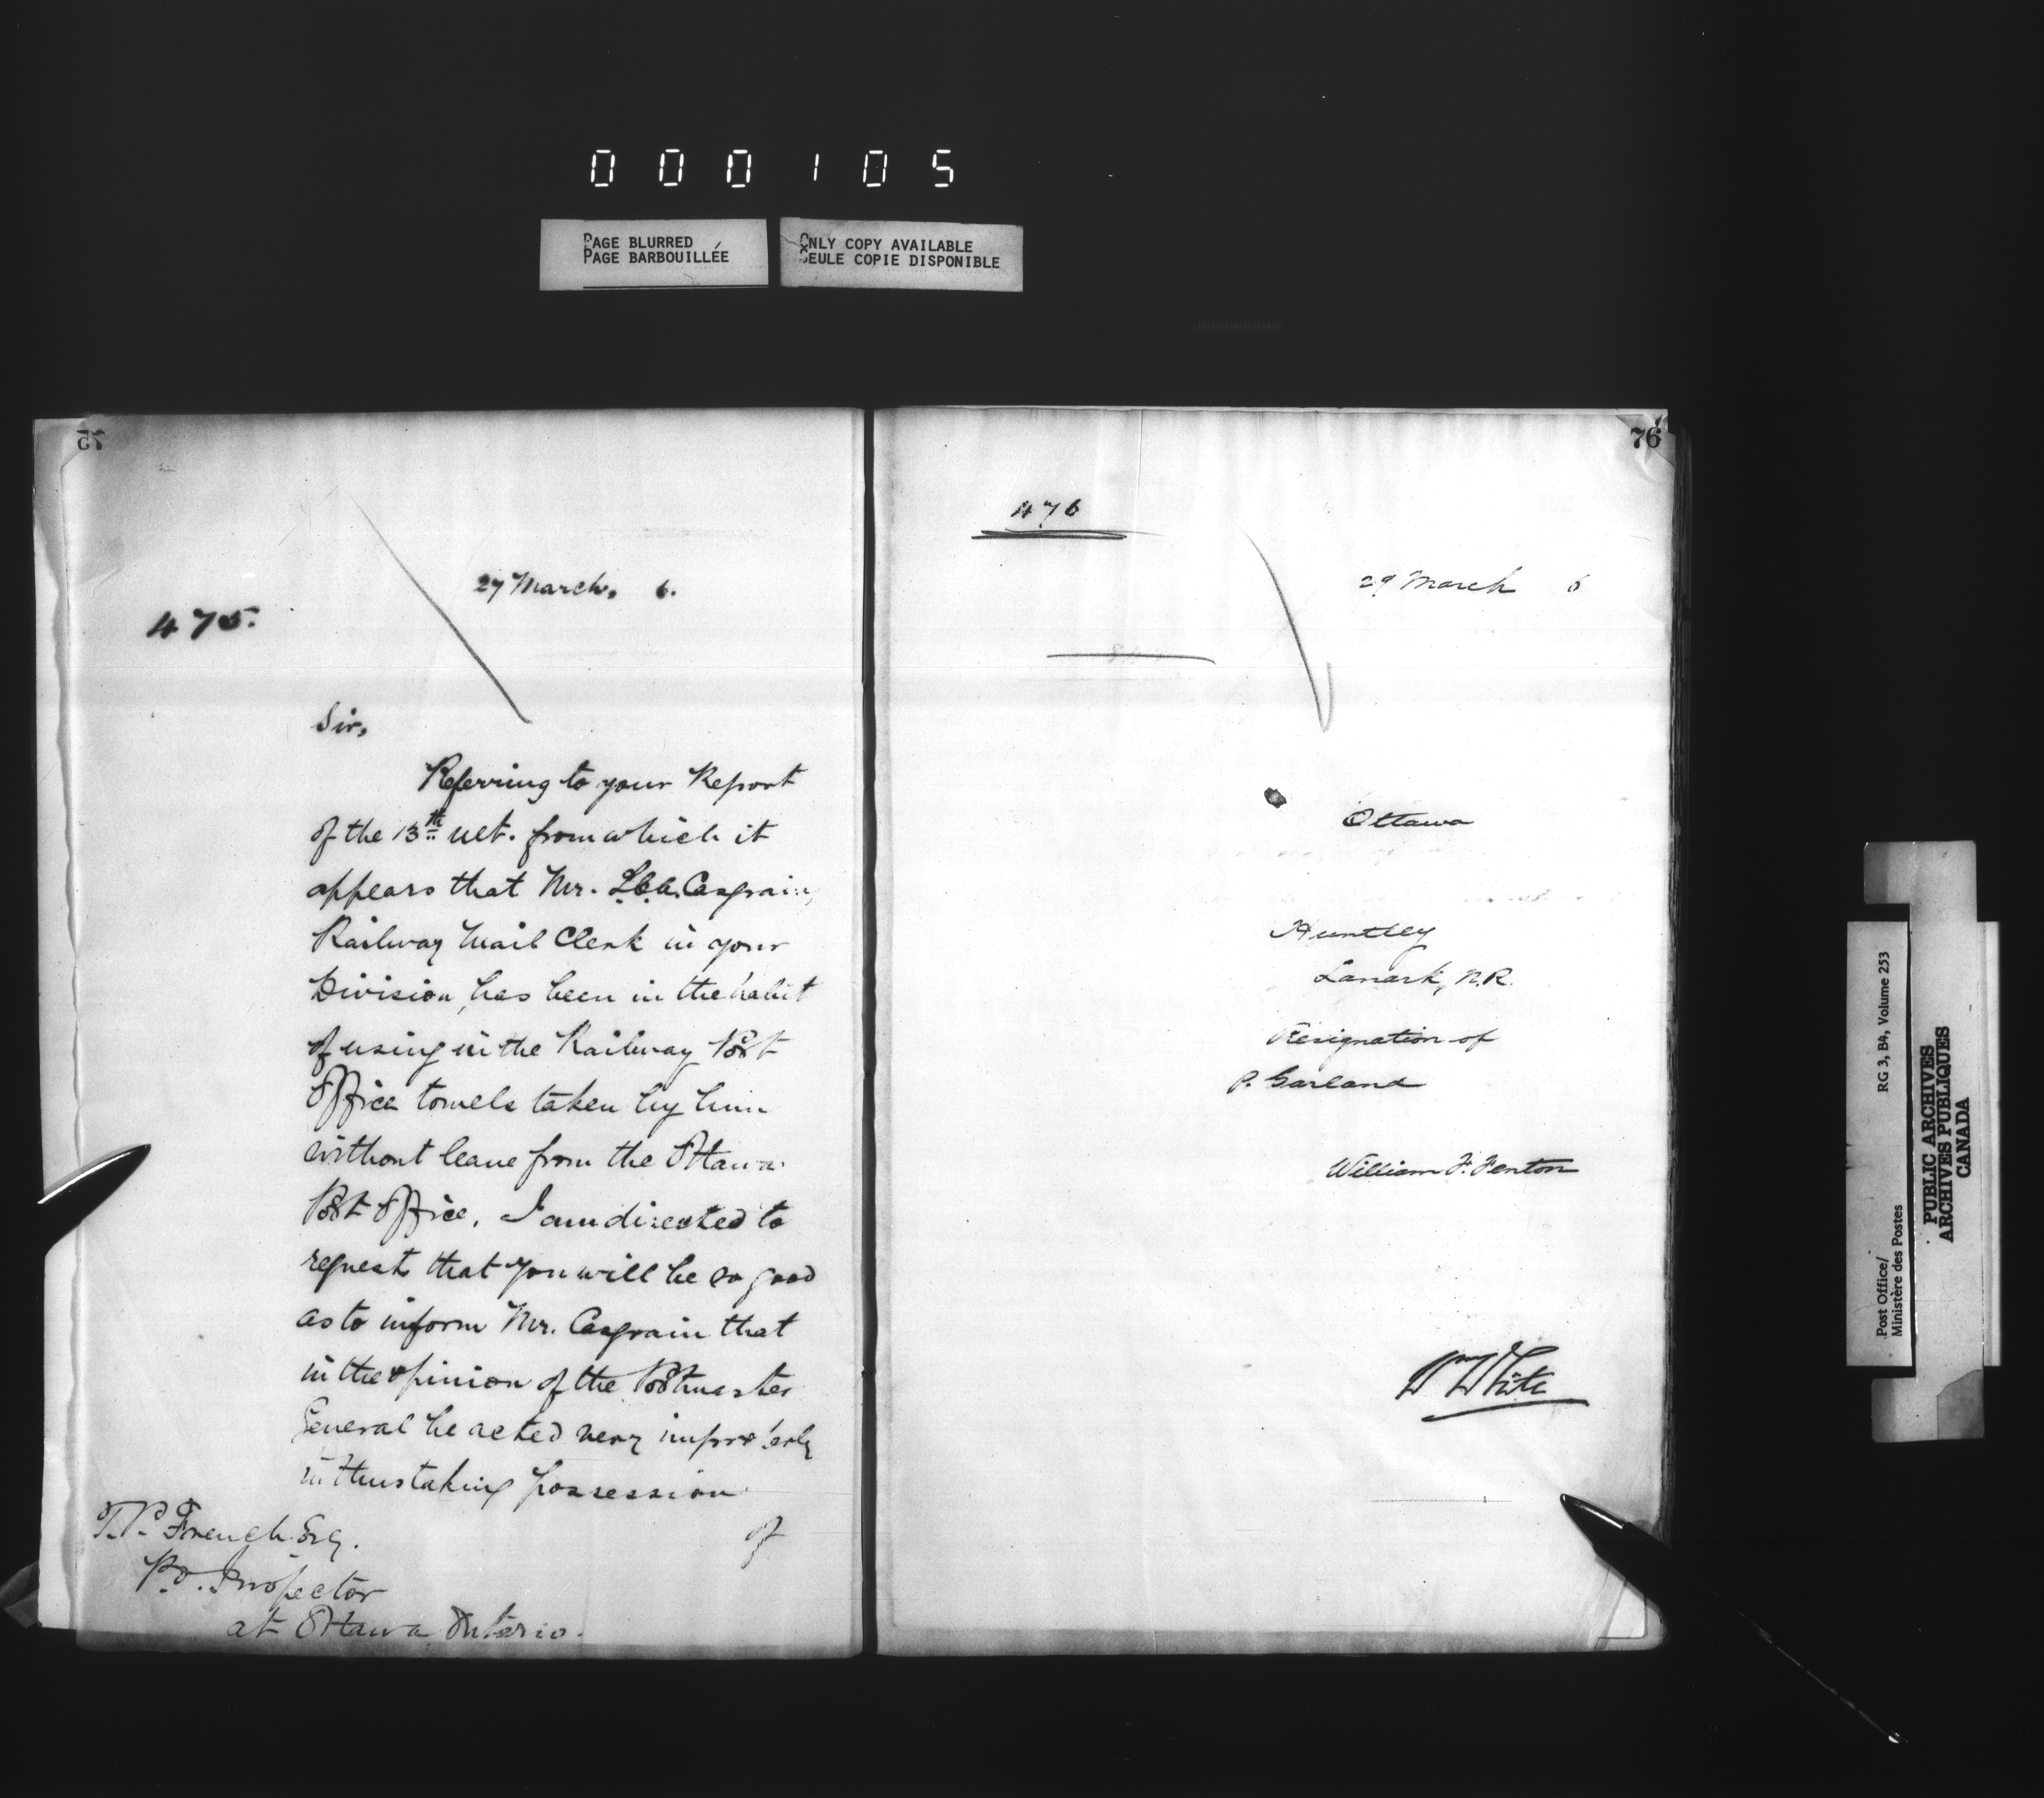 000105
PAGE BLURRED
PAGE BARBOUILLÉE
ONLY COPY AVAILABLE
SEULE COPIE DISPONIBLE
75
27 March, 6.
475.
Sir,
Referring to your Report
of the 13th ult. from which it
appears that Mr. Casgrain,
Railway Mail Clerk in your
Division, has been in the habit
of using in the Railway Post
Office towels taken by him
without leave from the Ottawa
Post Office, I am directed to
request that you will be so good
as to inform Mr. Casgrain that
in the opinion of the Postmaster
General he acted very improperly
in thus taking possession
of
T.P. French Esq.
P.O. Inspector
at Ottawa Ontario.
76
476
29 March 6
Ottawa
Huntley
Lanark, N.R.
Resignation of
P. Garland
William F. Fenton
Wm White
RG 3, B4, Volume 253
Post Office/
Ministère des Postes
PUBLIC ARCHIVES
ARCHIVES PUBLIQUES
CANADA